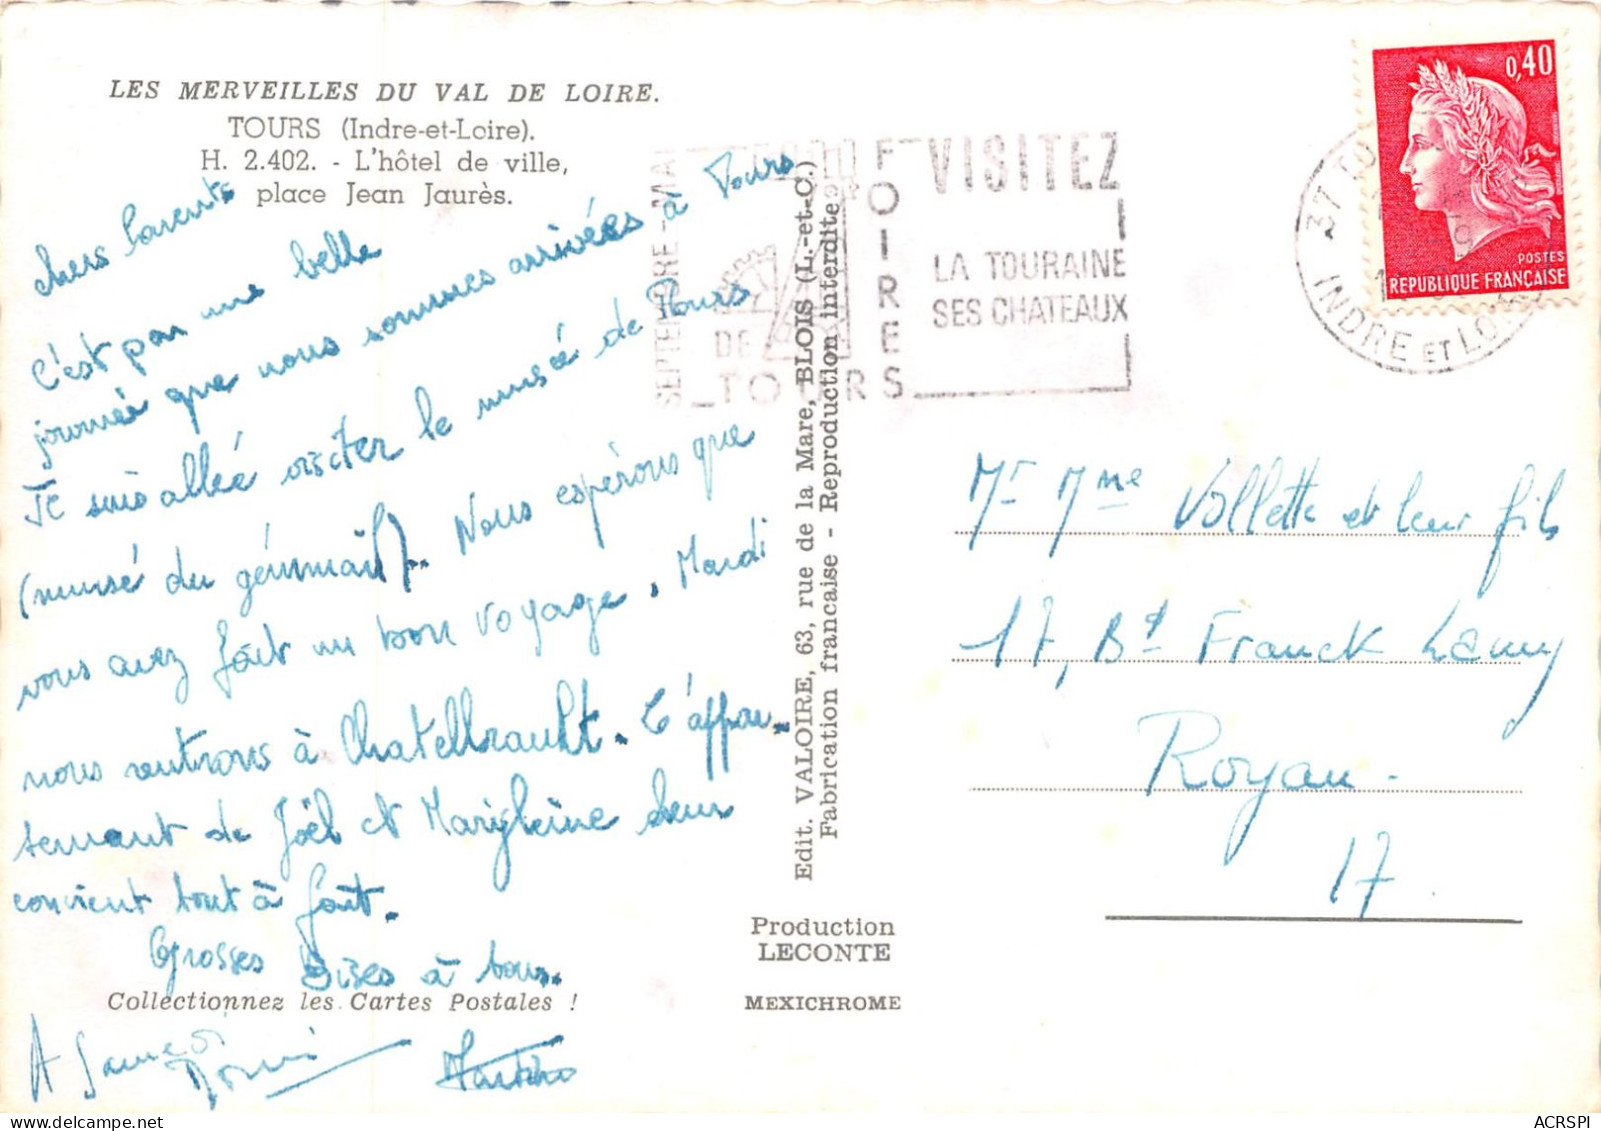 LES MERVEILLES DU VAL DE LOIRE.
TOURS (Indre-et-Loire).
H. 2.402. - L'hôtel de ville,
place Jean Jaurès.
chers Parents
C'est par une belle
journée que nous sommes arrivées à Tours
Je suis allée visiter le musé de Tours
(musé du gemmail). Nous espérons que
vous avez fait un bon voyage. Mardi
nous rentrons à Chatellerault. L'appar-
temant de Joël et Marylène leur
convient tout à fait.
Grosses Bises à tous.
Collectionnez les Cartes Postales !
A Samedi
Martine
Edit. VALOIRE, 63, rue de la Mare, BLOIS (L.-et-C.)
Fabrication francaise - Reproduction interdite
Production
LECONTE
MEXICHROME
SEPTEMBRE - MAI
FOIRES
DE
TOURS
VISITEZ
LA TOURAINE
SES CHATEAUX
37 TOURS
INDRE ET LOIRE
0,40
POSTES
REPUBLIQUE FRANÇAISE
Mr Mme Vollette et leur fils
17, Bd Franck Lamy
Royan.
17.
ACRSPI